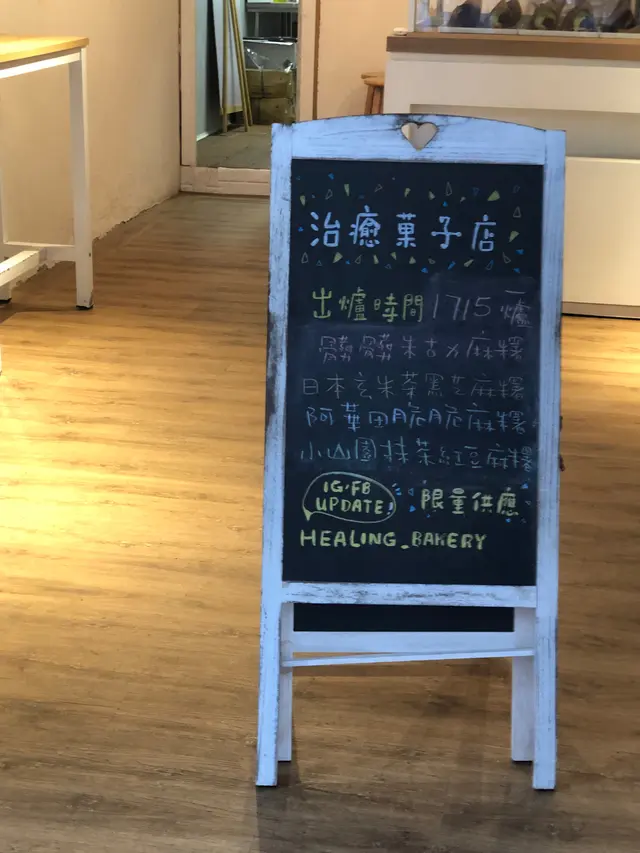 治癒菓子店
出爐時間 1715 一爐
髒髒朱古力麻糬
日本玄米茶黑芝麻糬
阿華田脆脆麻糬
小山園抹茶紅豆麻糬
IG.FB
UPDATE! 限量供應
HEALING_BAKERY